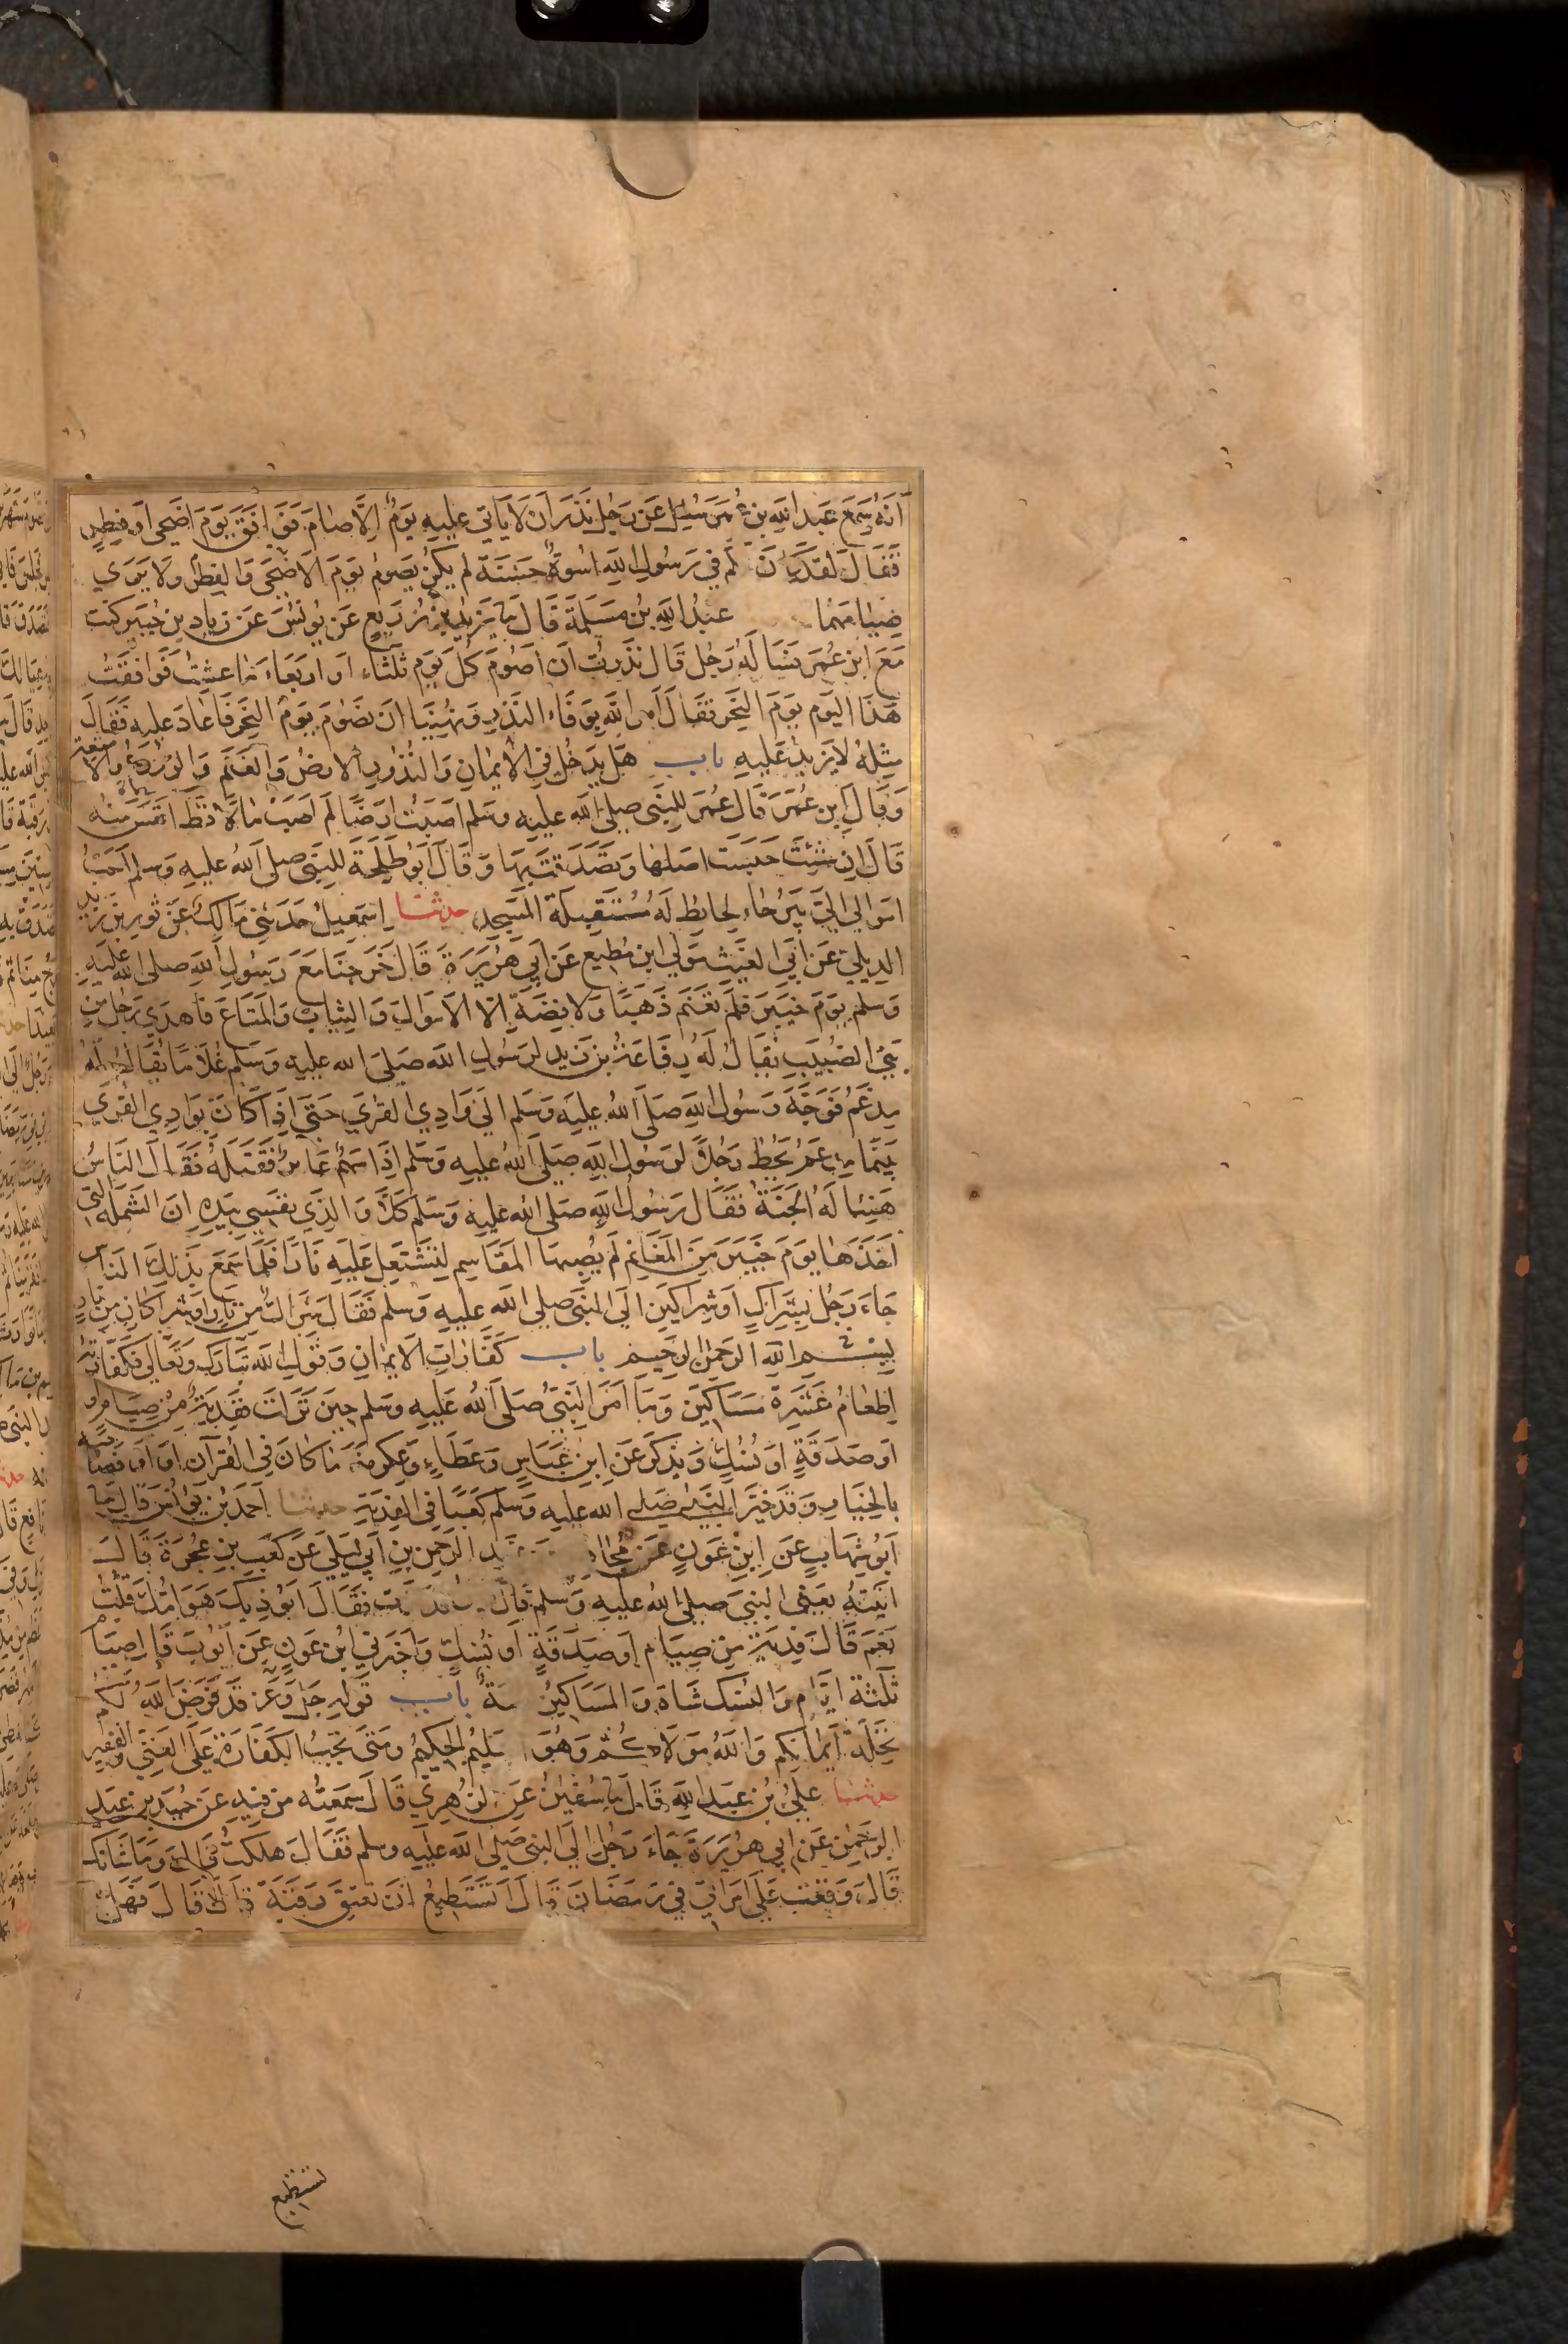 انه سمع عبد الله بن عمر سئل عن رجل نذر ان لا ياتي عليه يوم الا صام فوافق يوم اضحى او فطر
فقال لقد كان لكم في رسول الله اسوة حسنة لم يكن يصوم يوم الاضحى والفطر ولا يرى
صيامهما عبد الله بن مسلمة قال ثنا يزيد بن زريع عن يونس عن زياد بن جبير كنت
مع ابن عمر فساله رجل قال نذرت ان اصوم كل يوم ثلثاء او اربعاء ما عشت فوافقت
هذا اليوم يوم النحر فقال امر الله بوفاء النذر ونهينا ان نصوم يوم النحر فاعاد عليه فقال
مثله لا يزيد عليه باب هل يدخل في الايمان والنذور الارض والغنم والزروع والامتعة
وقال ابن عمر قال عمر للنبي صلى الله عليه وسلم اصبت ارضا لم اصب مالا قط انفس منه
قال ان شئت حبست اصلها وتصدقت بها وقال ابو طلحة للنبي صلى الله عليه وسلم احب
اموالي الي بيرحاء لحايط له مستقبلة المسجد حدثنا اسمعيل حدثني مالك عن ثور بن زيد
الديلي عن ابي الغيث مولى ابن مطيع عن ابي هريرة قال خرجنا مع رسول الله صلى الله عليه
وسلم يوم خيبر فلم نغنم ذهبا ولا فضة الا الاموال والثياب والمتاع فاهدى رجل من
بني الضبيب يقال له رفاعة بن زيد لرسول الله صلى الله عليه وسلم غلاما يقال له
مدعم فوجه رسول الله صلى الله عليه وسلم الى وادي القرى حتى اذا كان بوادي القرى
بينما مدعم يحط رحلا لرسول الله صلى الله عليه وسلم اذا سهم عائر فقتله فقال الناس
هنيئا له الجنة فقال رسول الله صلى الله عليه وسلم كلا والذي نفسي بيده ان الشملة التي
اخذها يوم خيبر من المغانم لم يصبها المقاسم لتشتعل عليه نارا فلما سمع بذلك الناس
جاء رجل بشراك او شراكين الى النبي صلى الله عليه وسلم فقال شراك من نار او شراكان من نار
بسم الله الرحمن الرحيم باب كفارات الايمان وقول الله تبارك وتعالى فكفارته
اطعام عشرة مساكين وما امر النبي صلى الله عليه وسلم حين نزلت ففدية من صيام
او صدقة او نسك ويذكر عن ابن عباس وعطاء وعكرمة ما كان في القرآن او او فصاحبه
بالخيار وقد خير النبي صلى الله عليه وسلم كعبا في الفدية حدثنا احمد بن يونس قال ثنا
ابو شهاب عن ابن عون عن مجاهد الرحمن بن ابي ليلى عن كعب بن عجرة قال
اتيته يعني النبي صلى الله عليه وسلم فقال فقال ايوذيك هوامك قلت
نعم قال فدية من صيام او صدقة او نسك واخبرني ابن عون عن ايوب قال صيام
ثلثة ايام والنسك شاة والمساكين ستة باب قوله جل وعز قد فرض الله لكم
تحلة ايمانكم والله مولاكم وهو العليم الحكيم ومتى تجب الكفارة على الغني والفقير
حدثنا علي بن عبد الله قال ثنا سفين عن الزهري قال سمعته من فيه عن حميد بن عبد
الرحمن عن ابي هريرة جاء رجل الى النبي صلى الله عليه وسلم فقال هلكت قال وما شانك
قال وقعت على امراتي في رمضان قال تستطيع ان تعتق رقبة قال لا قال فهل
تستطيع